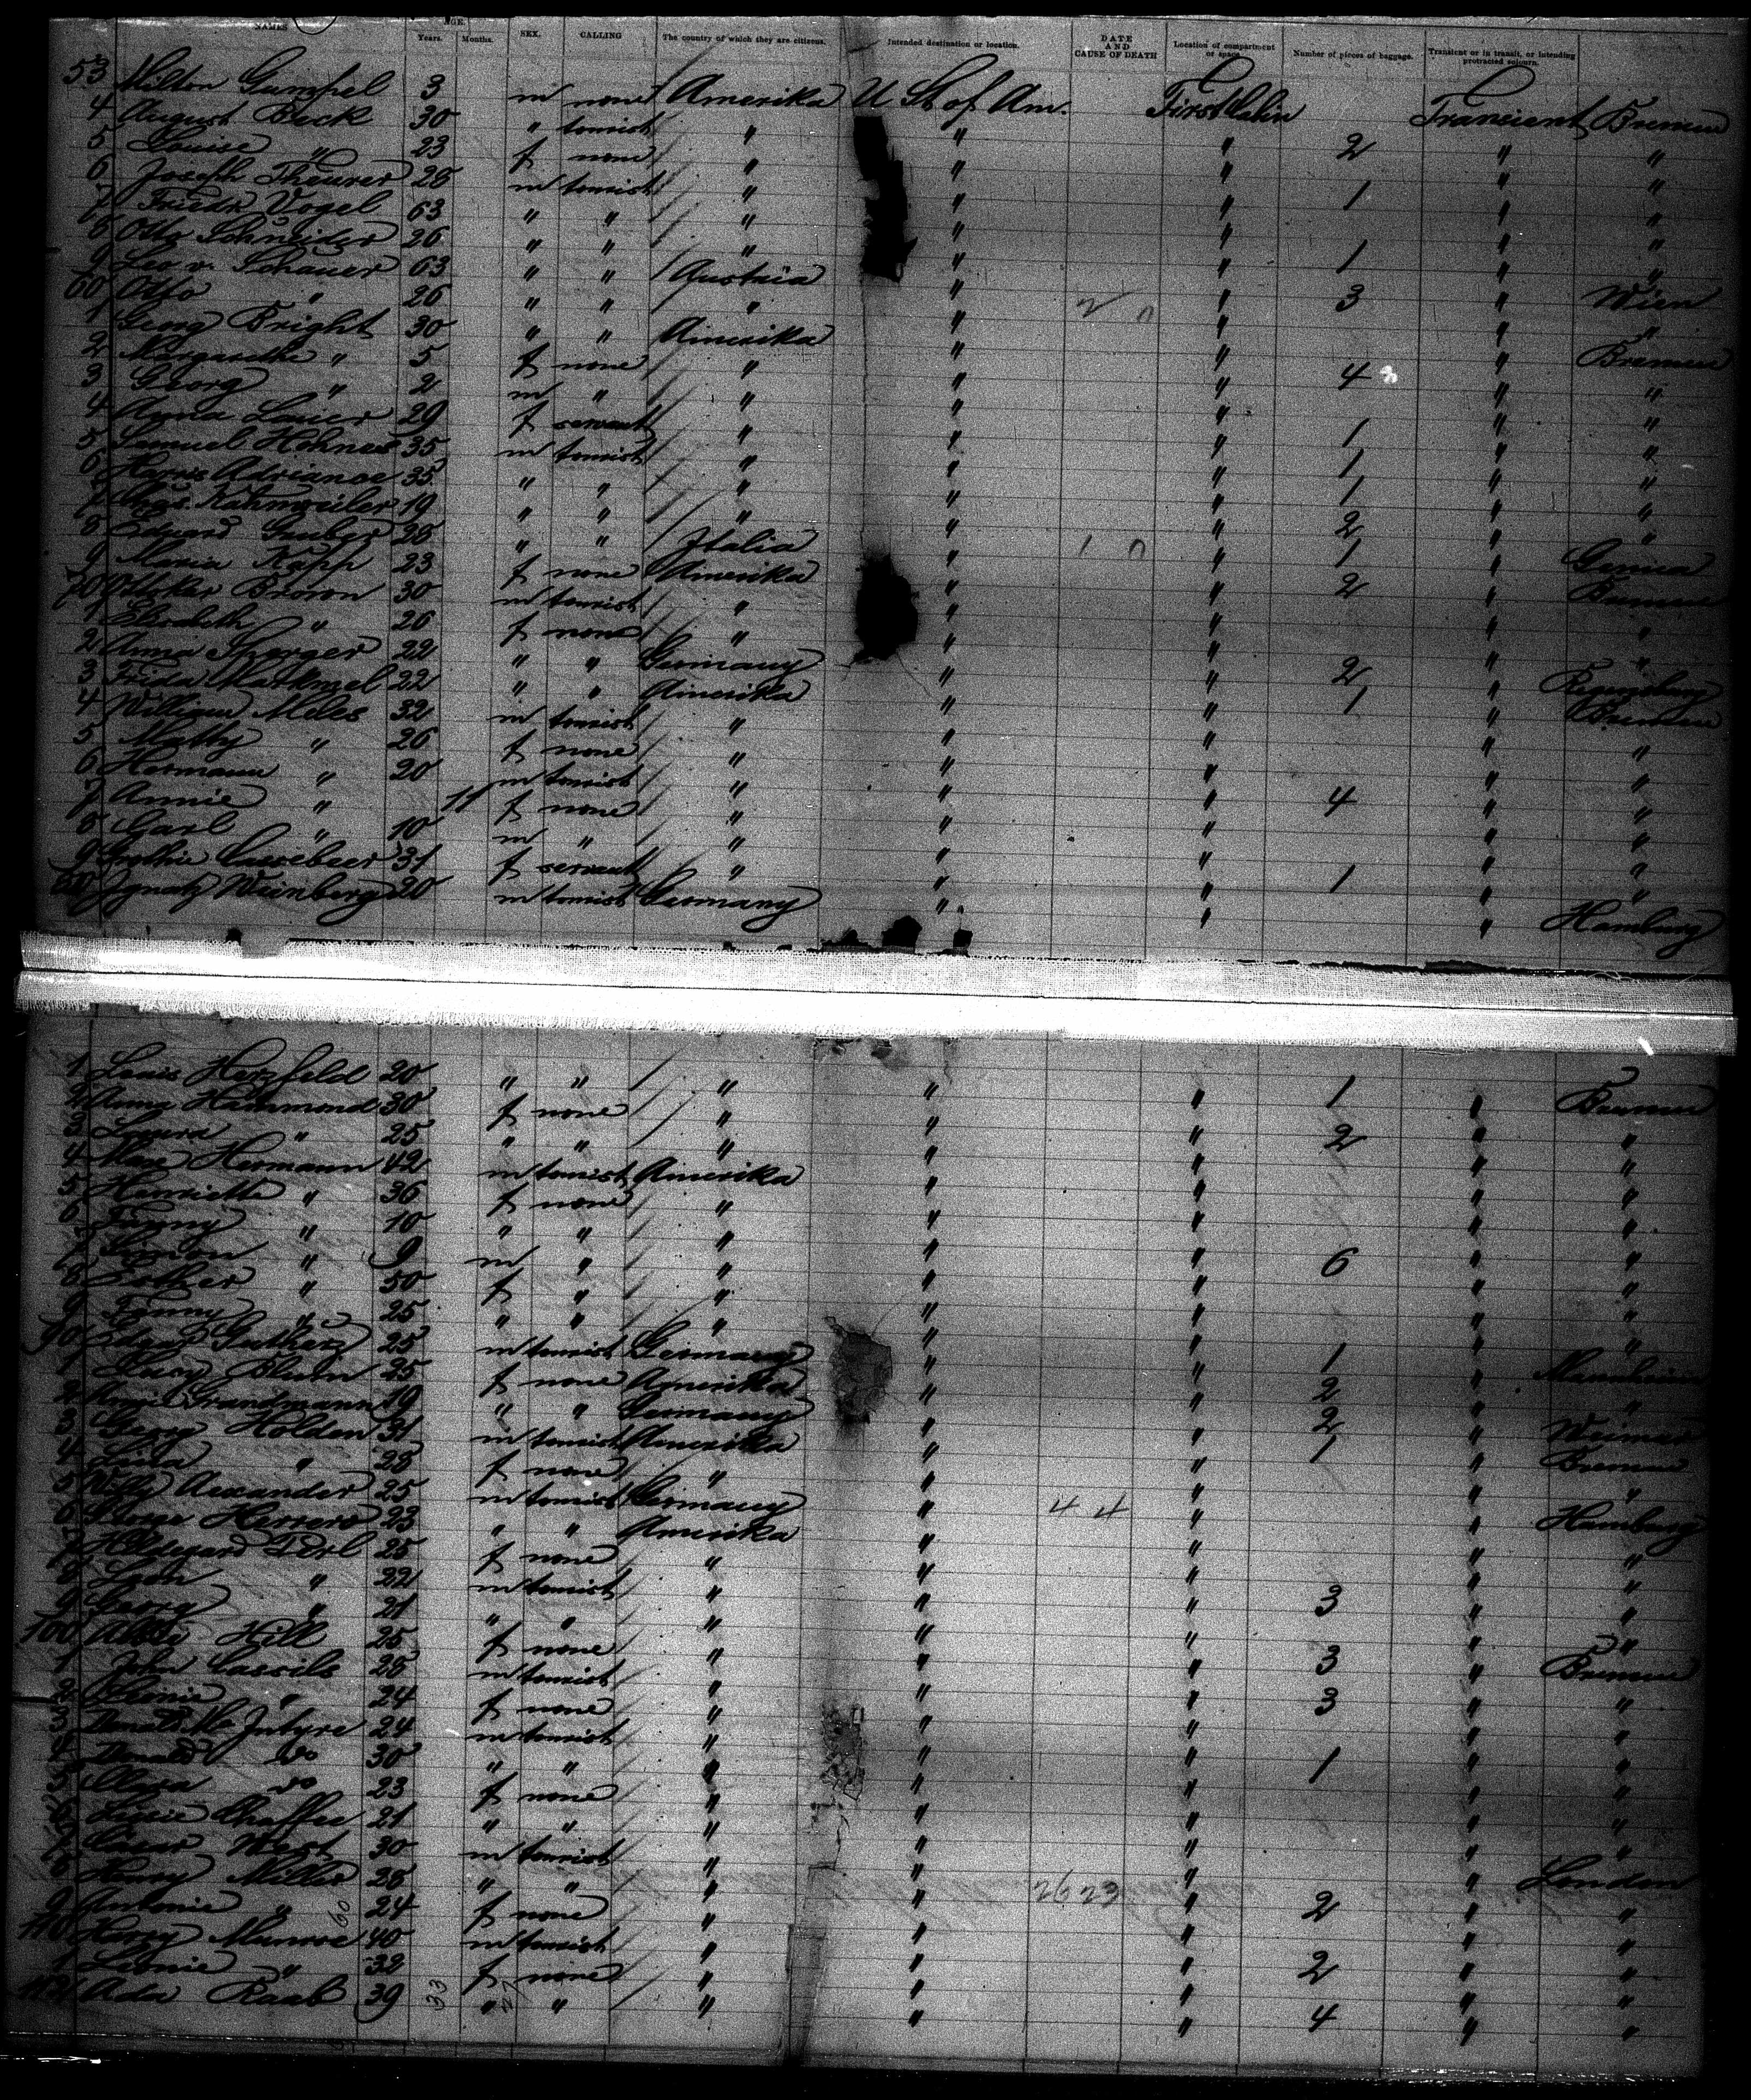 NAMES AGE. Years. Months. SEX. CALLING The country of which they are citizens. Intended destination or location. DATE AND CAUSE OF DEATH Location of compartment or space. Number of pieces of baggage. Transient or in transit, or intending protracted sojourn.
53 Milton Gumpel 3 m none Amerika U St of Am. First Cabin Transient Bremen
4 August Beck 30 " tourist " " " 2 " "
5 Louise " 23 f none " " " " "
6 Joseph Theurer 28 m tourist " " " 1 " "
7 Friedr Vogel 63 " " " " " " "
8 Otto Schneider 26 " " " " " 1 " "
9 Leo v. Schauer 63 " " Austria " " 3 " Wien
60 Otto " 26 " " " " 2 0 " " "
1 Georg Bright 30 " " Amerika " " " Bremen
2 Margarethe " 5 f none " " " 4 " "
3 Georg " 2 m " " " " " "
4 Anna Saier 29 f servant " " " 1 " "
5 Samuel 35 m tourist " " " 1 " "
6 Adriance 35 " " " " " 1 " "
7 Chas. Kahnweiler 19 " " " " " 2 " "
8 Edward Gruber 36 " " Italia " 1 0 " 1 " Genua
9 Maria Kapp 23 f none Amerika " " 2 " Bremen
70 Ottokar Brown 30 m tourist " " " " "
1 Elisabeth " 26 f none " " " " "
2 Anna Sperger 22 " " Germany " " 2 "
3 Frida 22 " " Amerika " " 1 " Bremen
4 William Meles 32 m tourist " " " " "
5 " 26 f none " " " " "
6 Hermann " 20 m tourist " " " 4 " "
7 Annie " 11 f none " " " " "
8 Carl " 10 m " " " " " "
9 Cassebeer 31 f servant " " " 1 " "
80 Ignatz Weinberg 20 m tourist Germany " " " Hamburg
1 Louis Herzfeld 20 " " " " " 1 " Bremen
2 Anna Hammond 30 f none " " " 2 " "
3 Laura " 25 " " " " " " "
4 Max Hermann 42 m tourist Amerika " " " "
5 Henriette " 36 f none " " " " "
6 Fanny " 10 " " " " " 6 " "
7 Simon " 9 m " " " " " "
8 Esther " 50 f " " " " " "
9 Fanny " 25 " " " " " " "
90 25 m tourist Germany " " 1 " Mannheim
1 Lucy Blum 25 f none Amerika " " 2 " "
2 Grandmann 19 " " Germany " " 2 " Weimar
3 Georg Holden 31 m tourist Amerika " " 1 " Bremen
4 Lina " 28 f none " " " " "
5 Willy Alexander 25 m tourist Germany " 4 4 " " Hamburg
6 Herrero 23 " " Amerika " " " "
7 Hildegard 25 f none " " " " "
8 Leon " 22 m tourist " " " 3 " "
9 Georg " 21 " " " " " " "
100 Hill 25 f none " " " 3 " Bremen
1 John Cassils 28 m tourist " " " 3 " "
2 " 24 f none " " " " "
3 Mc Intyre 24 m tourist " " " " "
4 Donald do 30 " " " " " 1 " "
5 do 23 f none " " " " "
6 Chaffee 21 " " " " " " "
7 West 30 m tourist " " " " London
8 Henry Miller 28 " " " " 26 23 " 2 " "
9 Antonie " 24 f none " " " " "
110 Harry Munroe 40 m tourist " " " 2 " "
1 Leonie " 32 f none " " " " "
112 Ada Raab 39 " " " " " 4 " "